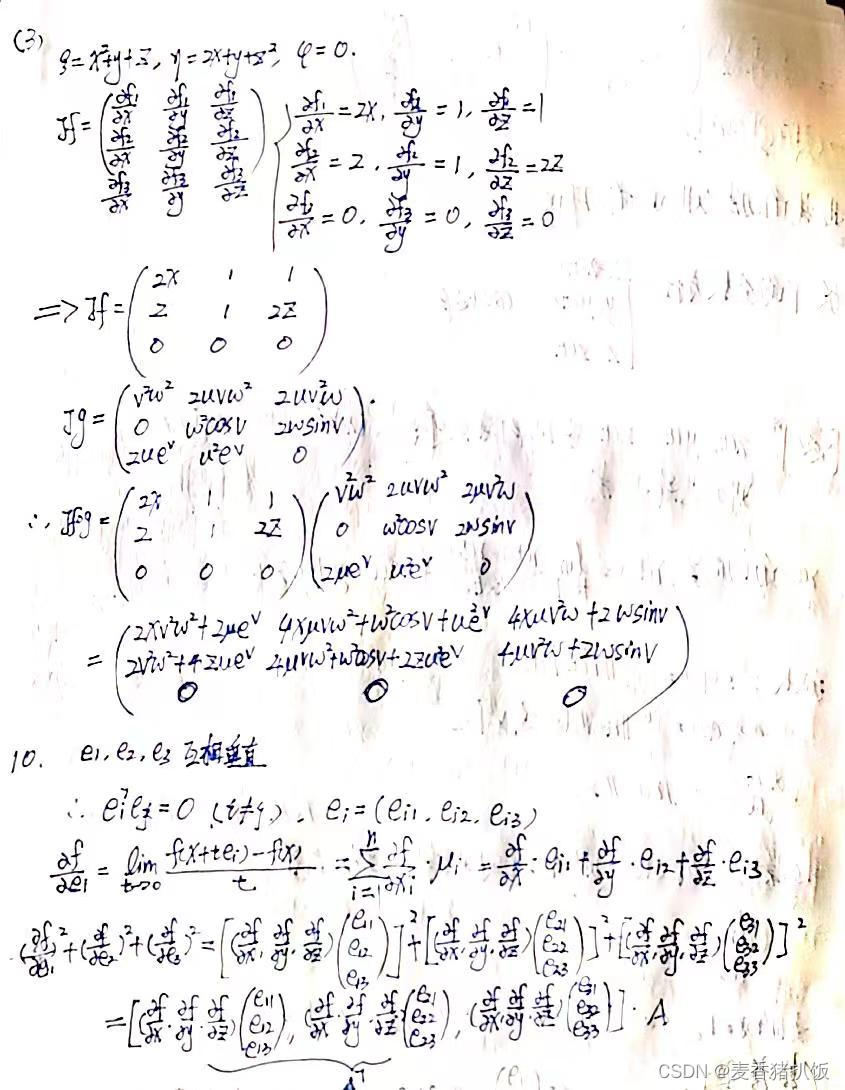 (3) ξ=x²+y+z, η=2x+y+z², φ=0.
Jf=(∂f1/∂x ∂f1/∂y ∂f1/∂z { ∂f1/∂x=2x, ∂f1/∂y=1, ∂f1/∂z=1
∂f2/∂x ∂f2/∂y ∂f2/∂z ∂f2/∂x=2, ∂f2/∂y=1, ∂f2/∂z=2z
∂f3/∂x ∂f3/∂y ∂f3/∂z) ∂f3/∂x=0, ∂f3/∂y=0, ∂f3/∂z=0
(2x 1 1
=> Jf= 2 1 2z
0 0 0)
(v²w² 2uvw² 2uv²w
Jg= 0 w²cosv 2wsinv
2ue^v u²e^v 0).
(2x 1 1 (v²w² 2uvw² 2uv²w
∴ Jf∘g= 2 1 2z 0 w²cosv 2wsinv
0 0 0) 2ue^v u²e^v 0)
= (2xv²w²+2ue^v 4xuvw²+w²cosv+u²e^v 4xuv²w+2wsinv
2v²w²+4zue^v 4uvw²+w²cosv+2zu²e^v 4uv²w+2wsinv
0 0 0)
10. e1, e2, e3 互相垂直
∴ ei^T ej=0 (i≠j), ei=(ei1, ei2, ei3)
∂f/∂e1 = lim t→0 f(x+tei)-f(x)/t = Σ i=1 n ∂f/∂xi · μi = ∂f/∂x · ei1 + ∂f/∂y · ei2 + ∂f/∂z · ei3
(∂f/∂e1)²+(∂f/∂e2)²+(∂f/∂e3)²=[(∂f/∂x, ∂f/∂y, ∂f/∂z)(e11 e12 e13)]²+[(∂f/∂x, ∂f/∂y, ∂f/∂z)(e21 e22 e23)]²+[(∂f/∂x, ∂f/∂y, ∂f/∂z)(e31 e32 e33)]²
=[(∂f/∂x · ∂f/∂y · ∂f/∂z)(e11 e12 e13), (∂f/∂x · ∂f/∂y · ∂f/∂z)(e21 e22 e23), (∂f/∂x, ∂f/∂y, ∂f/∂z)(e31 e32 e33)] · A
CSDN @麦香猪扒饭